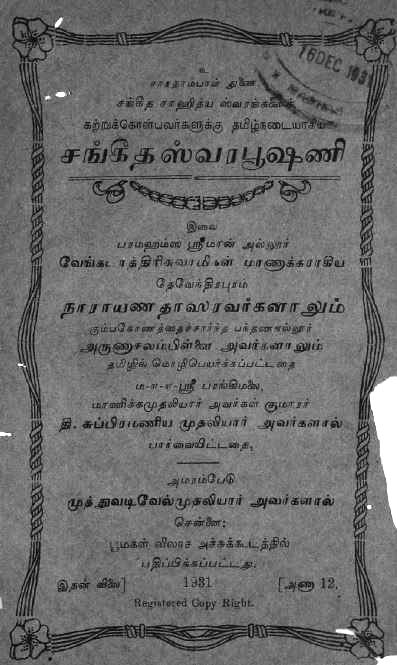 உ
சாரதாம்பாள் துணை
சங்கீத சாஹித்ய ஸ்வரங்களைக்
கற்றுக்கொள்பவர்களுக்கு தமிழ்நடையாகிய
சங்கீதஸ்வரபூஷணி
இவை
பரமஹம்ஸ ஸ்ரீமான் அல்லூர்
வேங்கடாத்திரிசுவாமிகள் மாணாக்கராகிய
தேவேந்திரபுரம்
நாராயண தாஸரவர்களாலும்
கும்பகோணத்தைச்சார்ந்த பந்தணைநல்லூர்
அருணாசலம்பிள்ளை அவர்களாலும்
தமிழில் மொழிபெயர்க்கப்பட்டதை
ம-ா-ா-ஸ்ரீ பரங்கிமலை,
மாணிக்கமுதலியார் அவர்கள் குமாரர்
தி. சுப்பிரமணிய முதலியார் அவர்களால்
பார்வையிட்டதை,
அமரம்பேடு
முத்துவடிவேல்முதலியார் அவர்களால்
சென்னை:
பூமகள் விலாச அச்சுக்கூடத்தில்
பதிப்பிக்கப்பட்டது.
இதன் விலை] 1931 [அணா 12.
Registered Copy Right.
16 DEC 1931